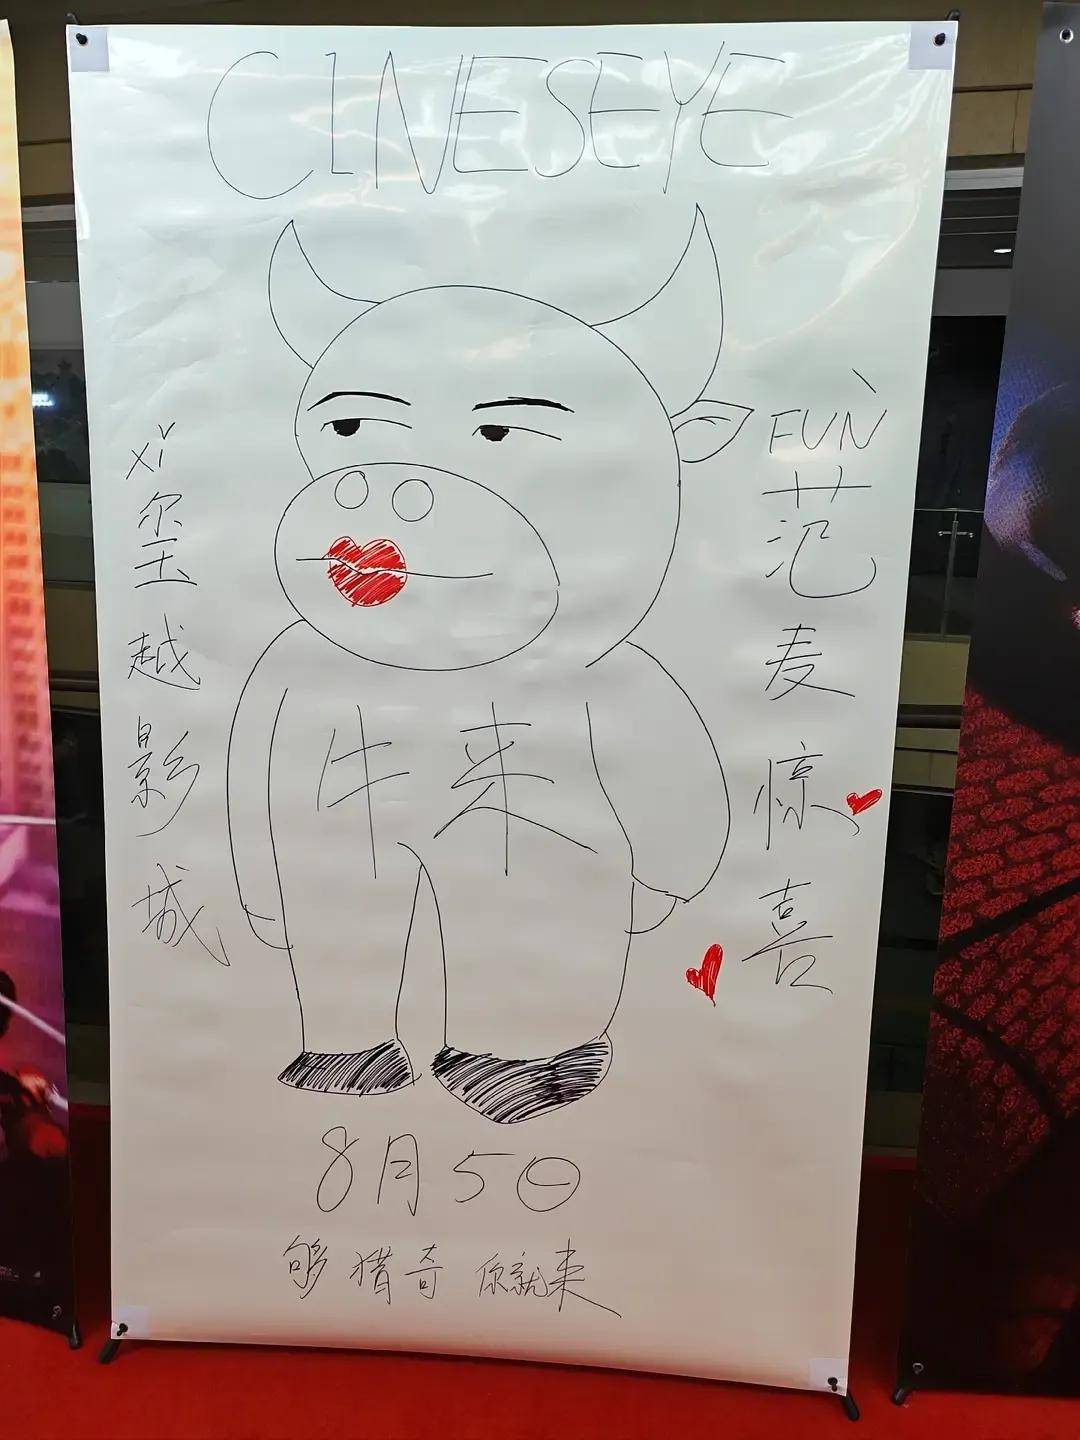 CINESEYE
xì
尔
玉
越
影
城
FUN
范
麦
惊
喜
牛来
8月5日
够猎奇你就来